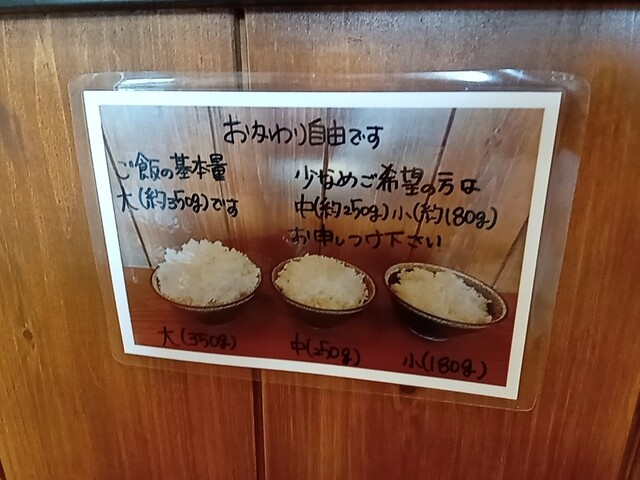 おかわり自由です
ご飯の基本量
大(約350g)です
少なめご希望の方は
中(約250g)小(約180g)
お申しつけ下さい
大(350g)
中(250g)
小(180g)